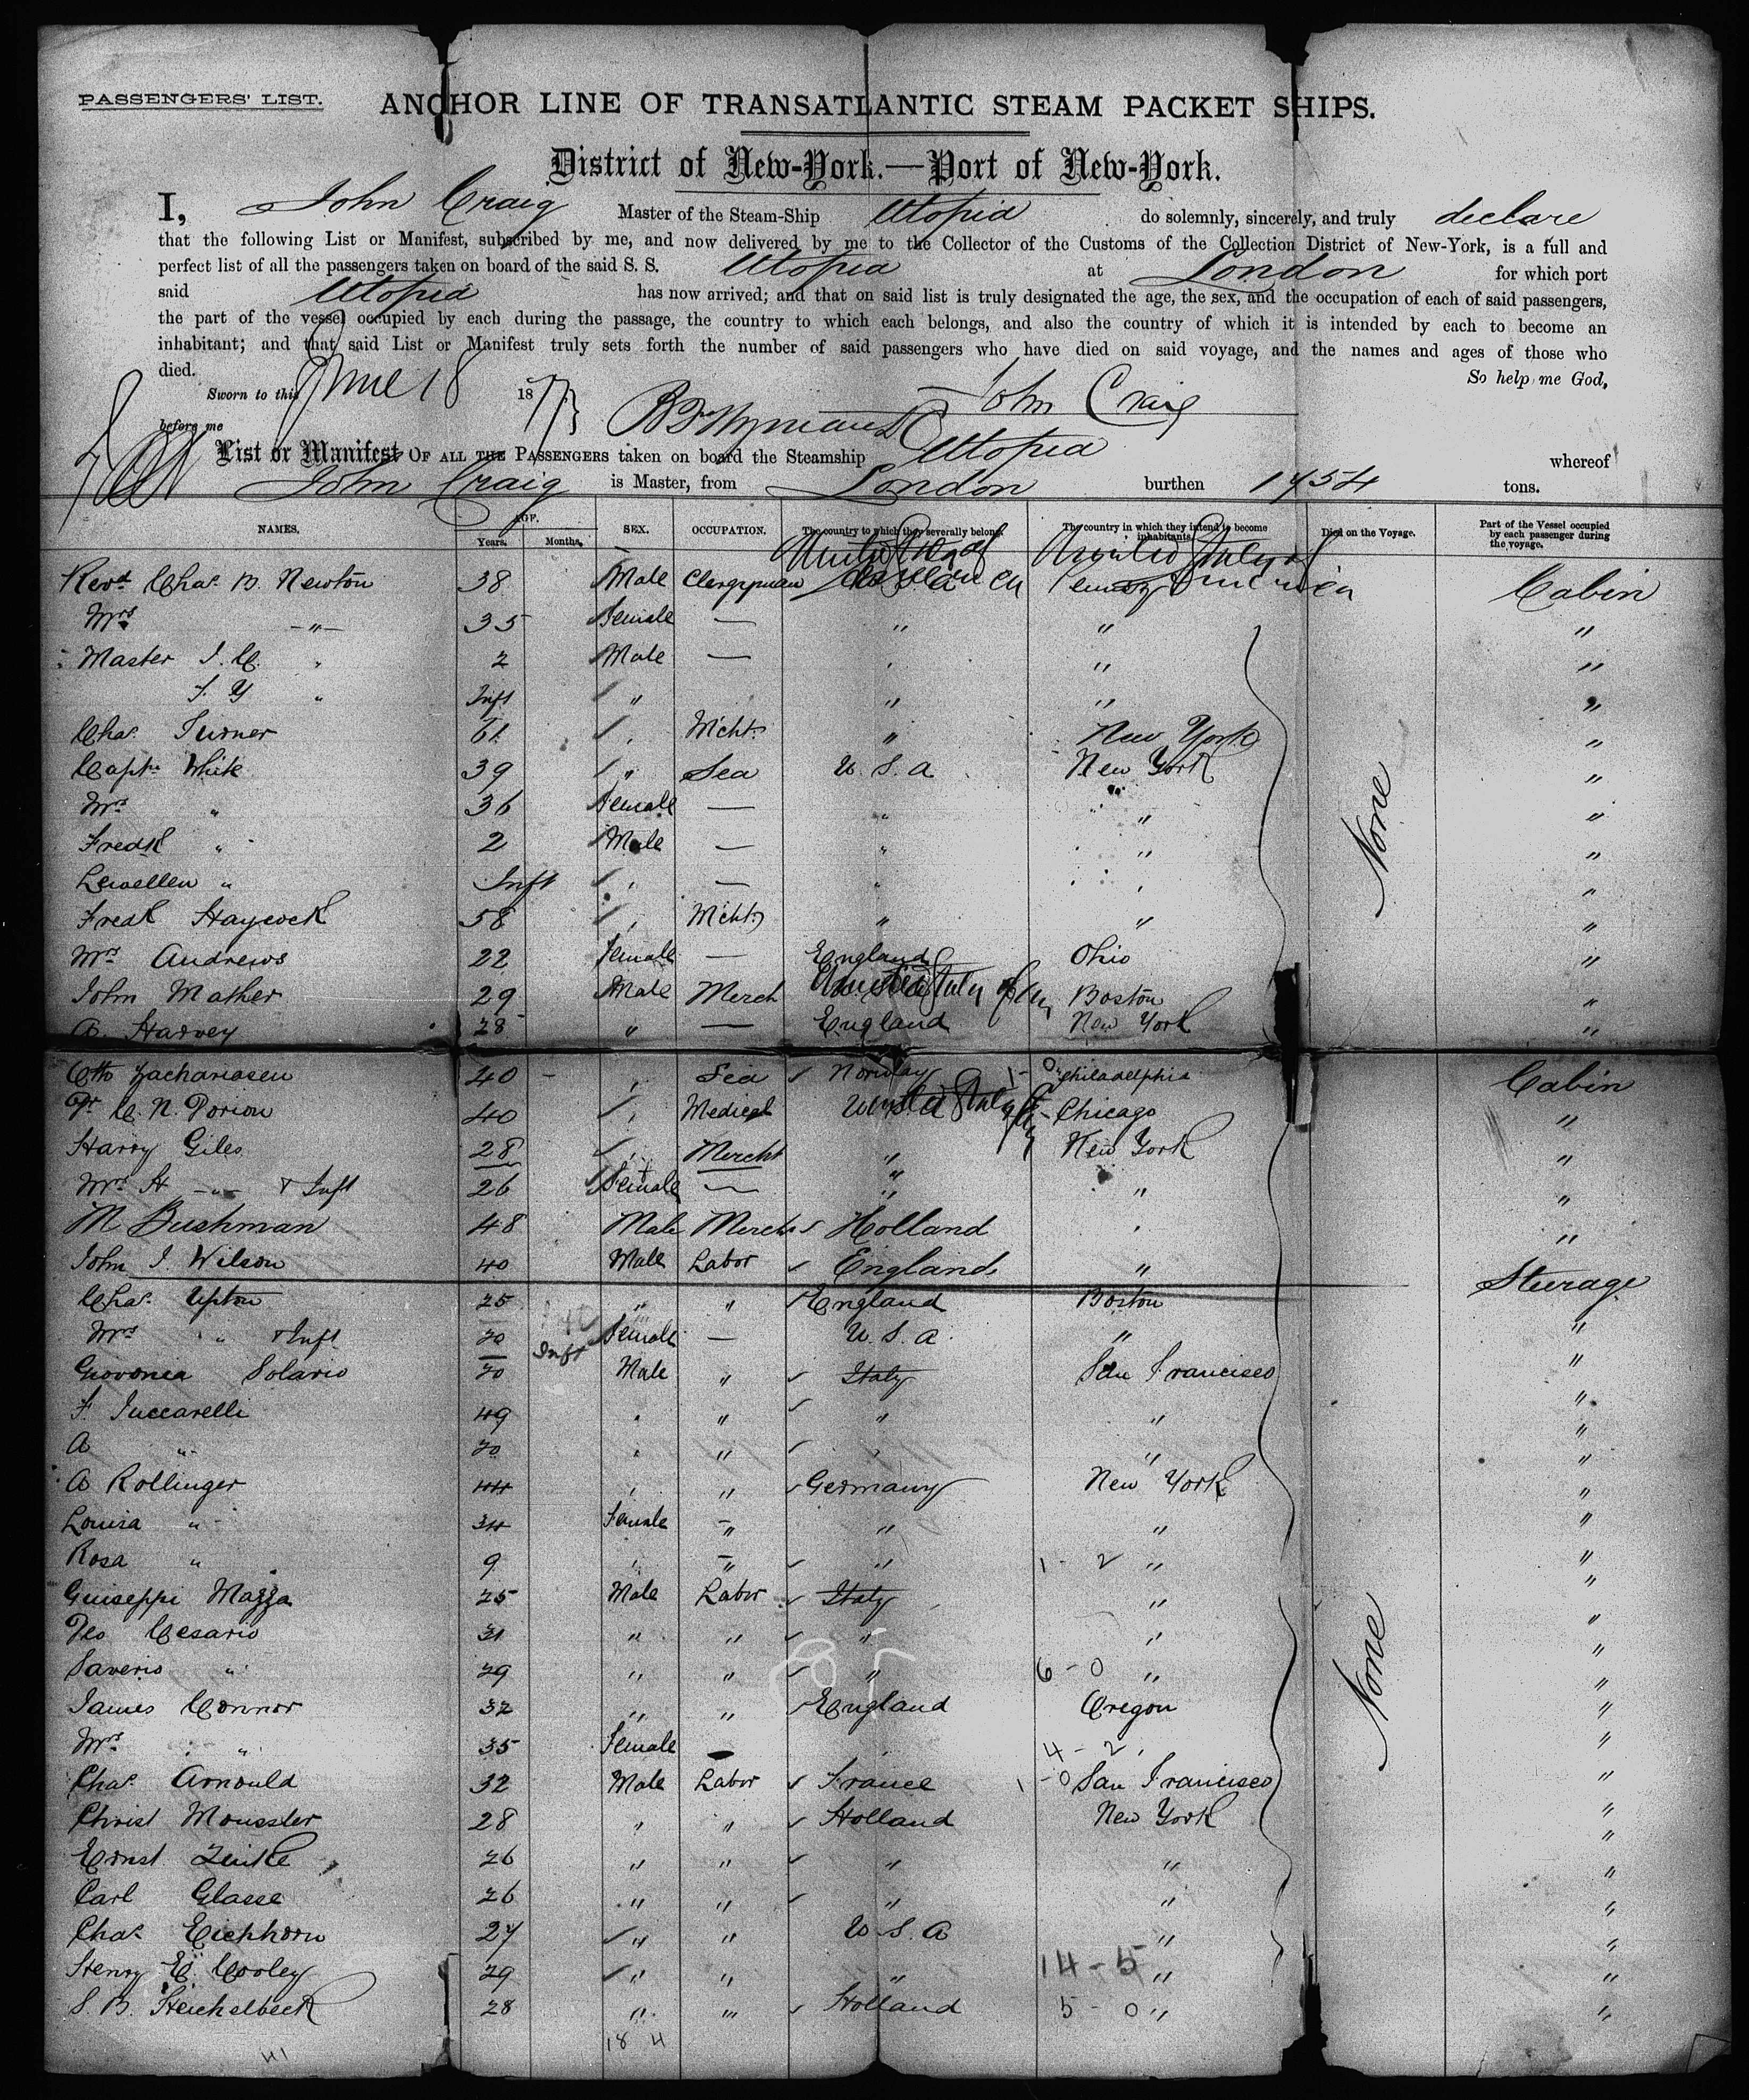 PASSENGERS' LIST.
ANCHOR LINE OF TRANSATLANTIC STEAM PACKET SHIPS.
District of New-York.—Port of New-York.
I, John Craig Master of the Steam-Ship Utopia do solemnly, sincerely, and truly declare
that the following List or Manifest, subscribed by me, and now delivered by me to the Collector of the Customs of the Collection District of New-York, is a full and
perfect list of all the passengers taken on board of the said S. S. Utopia at London for which port
said Utopia has now arrived; and that on said list is truly designated the age, the sex, and the occupation of each of said passengers,
the part of the vessel occupied by each during the passage, the country to which each belongs, and also the country of which it is intended by each to become an
inhabitant; and that said List or Manifest truly sets forth the number of said passengers who have died on said voyage, and the names and ages of those who
died. So help me God,
Sworn to this June 18 1877 John Craig
before me
List or Manifest OF ALL THE PASSENGERS taken on board the Steamship Utopia whereof
John Craig is Master, from London burthen 1454 tons.
NAMES. AGE. Years. Months. SEX. OCCUPATION. The country to which they severally belong. The country in which they intend to become inhabitants. Died on the Voyage. Part of the Vessel occupied by each passenger during the voyage.
Revd Chas. B. Newton 38 Male Clergyman United States of America Cabin
Mrs -"- 35 Female — " " "
Master J. C. " 2 Male — " " "
F. Y " Inft " " " "
Chas. Turner 61 " Mcht. " New York "
Captn White 39 " Sea U. S. A New York "
Mrs " 36 Female — " " "
Fredk " 2 Male — " " "
Lewellen " Inft " — " " "
Fredk Haycock 58 " Mcht. " " "
Mrs Andrews 22 Female — England Ohio "
John Mather 29 Male Merch United States of Am Boston "
A. Harvey 28 " — England New York "
None
Otto Zachariasen 40 - " Sea Norway 1-0 Philadelphia Cabin
Dr C. N. Dorion 40 " Medical United States of Am Chicago "
Harry Giles 28 " Mercht " New York "
Mrs H -"- & Inft 26 Female — " " "
M Bushman 48 Male Mercht Holland " "
John J. Wilson 40 Male Labor England " Steerage
Chas. Upton 25 " " England Boston "
Mrs " & Inft 20 Inft Female — U. S. A " "
Giovonea Solario 20 Male " Italy San Francisco "
F. Juccarelli 49 " " " " "
A " 20 " " " " "
A Rollinger 44 " " Germany New York "
Louisa " 34 Female " " " "
Rosa " 9 " " " 1-2 " "
Guiseppi Mazza 25 Male Labor Italy " "
Cesario 31 " " " " "
Saverio " 29 " " " 6-0 " "
James Connor 32 " " England Oregon "
Mrs " 35 Female — " 4-2 " "
Chas. Arnould 32 Male Labor France 1-0 San Francisco "
Christ Moussler 28 " " Holland New York "
Ernst Zinke 26 " " " " "
Carl Glasse 26 " " " " "
Chas. Eichhorn 27 " " U. S. A " "
Henry E. Cooley 29 " " " 14-5 " "
S. B. Heichelbeck 28 " " Holland 5-0 " "
None
18 4
41